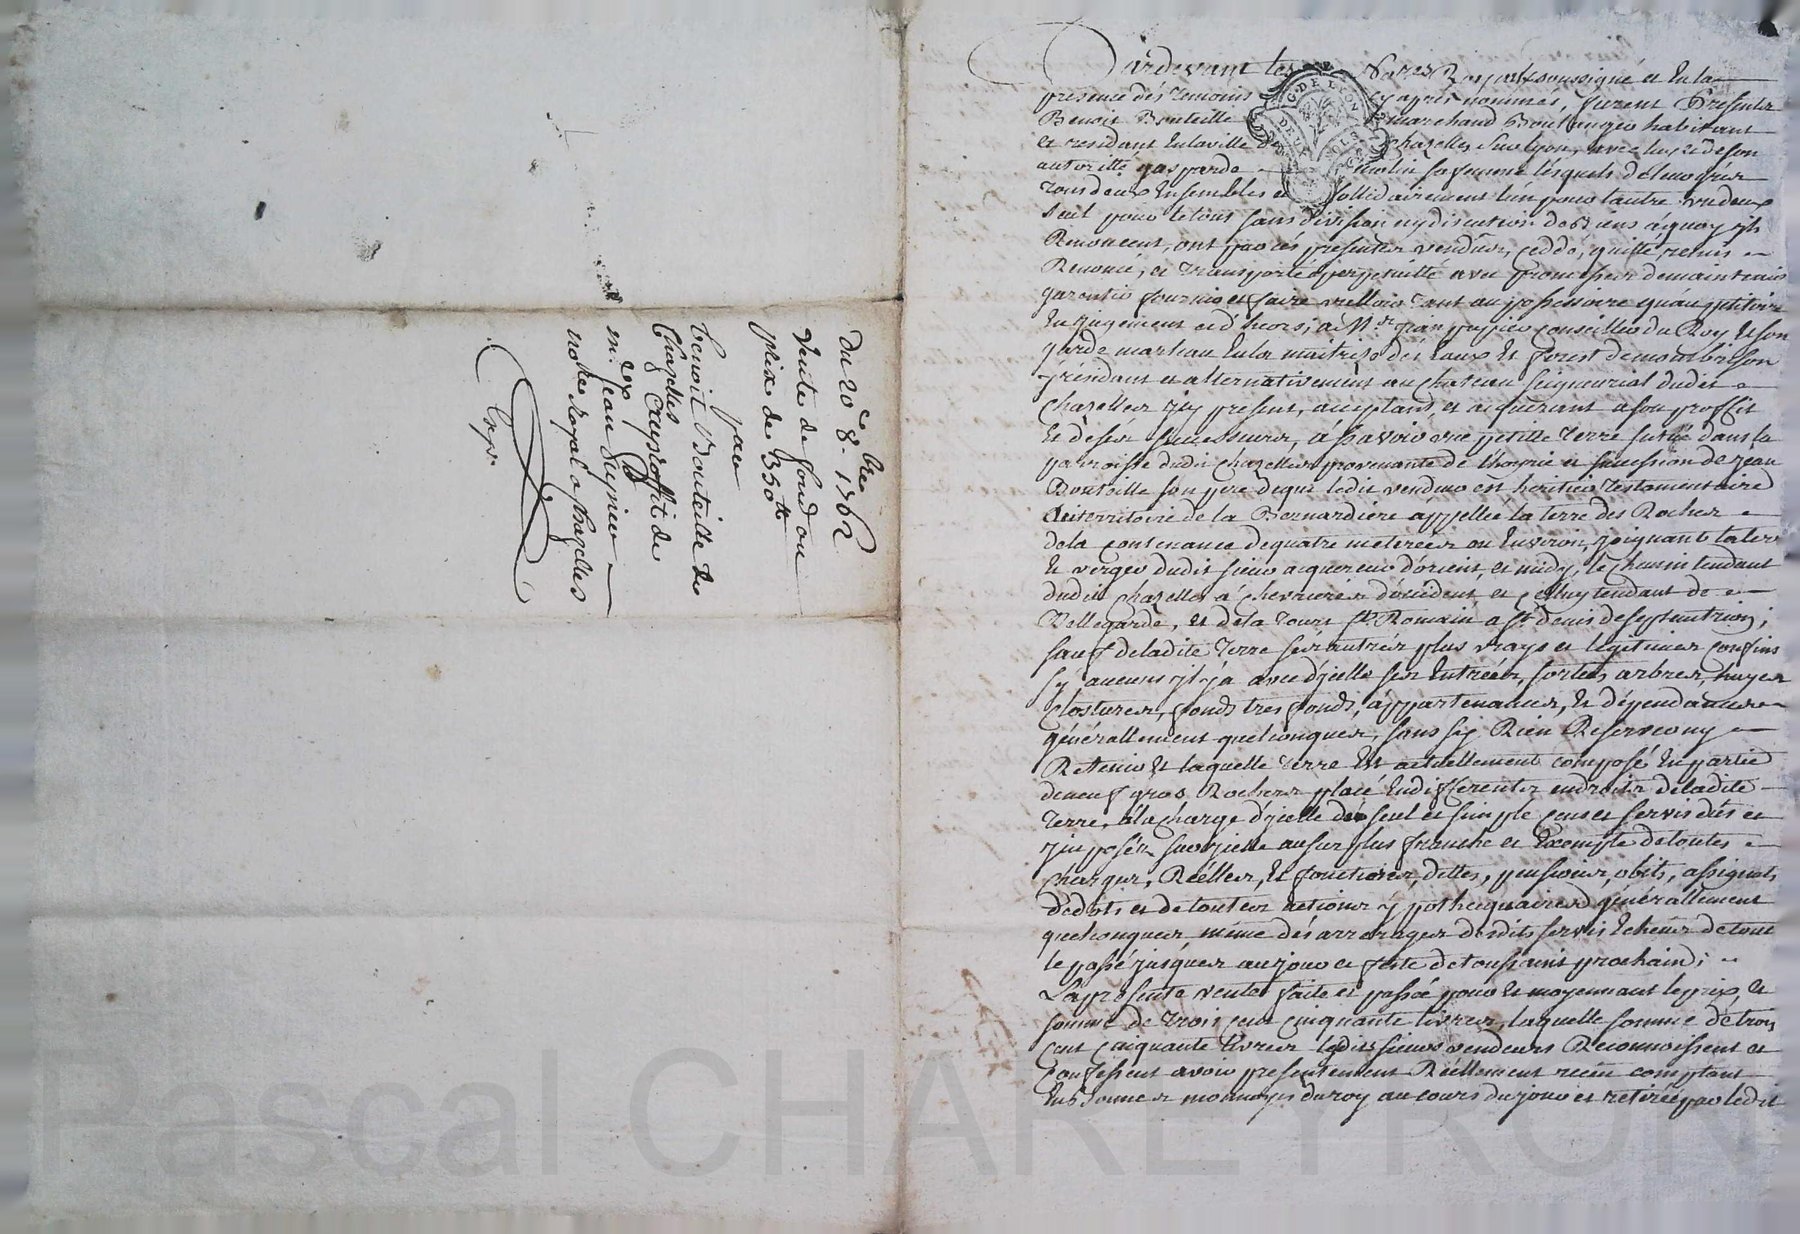 du 20e 8bre 1762
Vente de fond au
prix de 350 tt
par
benoit Bouteille de
Chazelles
au proffit de
m.e Jean Grepier
notre Royal a chazelles
Pardevant les No.res Royal soussigné et En la
presence des temoins cy apres nommés, furent Presents
Benoit Bouteille marchand Boulanger habitant
et residant En la ville de Chazelles Sur lyon, avec luy et de son
autoritté gasparde sa femme lesquels de leur gré
tous deux Ensembles et sollidairement l'un pour l'autre un deux
seul pour le tout sans division ny discution de Biens a quoy ils
Renoncent, ont par ces presentes vendus, ceddé, quitté remis
Renoncé, et transporté a perpetuitté avec promesses de maintenir
garentir fournir et faire valloir tant au possessoire qu'au petitoire
En Jugement et d'hors; a Mr. conseiller du Roy Et son
garde marteau En la maitrise des Eaux Et forest de montbrison
residant et alternativement au chateau seigneurial dudit
Chazelles Icy present, acceptand, et acquerant a son proffit
Et de ses successeurs, a sçavoir une petitte terre située dans la
parroisse dudit chazelles provenante de l'hoyrie et succession de Jean
Bouteille son pere de qui ledit vendeur est heritier testamentaire
au territoire de la Bernardiere appellée la terre des Rocher
de la contenance de quatre meterées ou Environ, Joignant
Et verger dudit sieur acquereur d'orient, et midy, le chemin tendant
dudit Chazelles a chevrieres d'occident, et celluy tendant de
Bellegarde, et de la Tour St. Romain a St. denis de septentrion;
sauf deladite Terre ses autres plus vrays et legitimes confins
sy aucuns il y a avec d'jcelle ses Entrées, sorties arbres, hayes
clostures, fonds tres fonds, appartenances, Et dépendances
générallement quelconques, sans sy Rien Reserver ny
Retenir Et laquelle terre Est actuellement composé En partie
de neuf gros Rochers placé En differents endroits de ladite
terre, a la charge d'jcelle des seul et simple cens et servis dûs et
jmposés sur jcelle au surplus franche et Exempte de toutes
charges, Réélles, Et foncieres, dettes, pensions, obits, assignats,
dedots et de toutes actions ypothequaires générallement
quelconques, même des arrerages desdits servis Echeus de tout
le passé jusques au jour et feste de toussaint prochain;
La presente vente faite et passée pour Et moyennant le prix, Et
somme de trois cent cinquante livres, laquelle somme de trois
cent cinquante livres lesdits sieurs vendeurs Reconnoissent et
confessent avoir presentement Réellement receu comptant
En bonnes monnoyes du roy au cours du jour et retirée par ledit
Pascal CHAREYRON